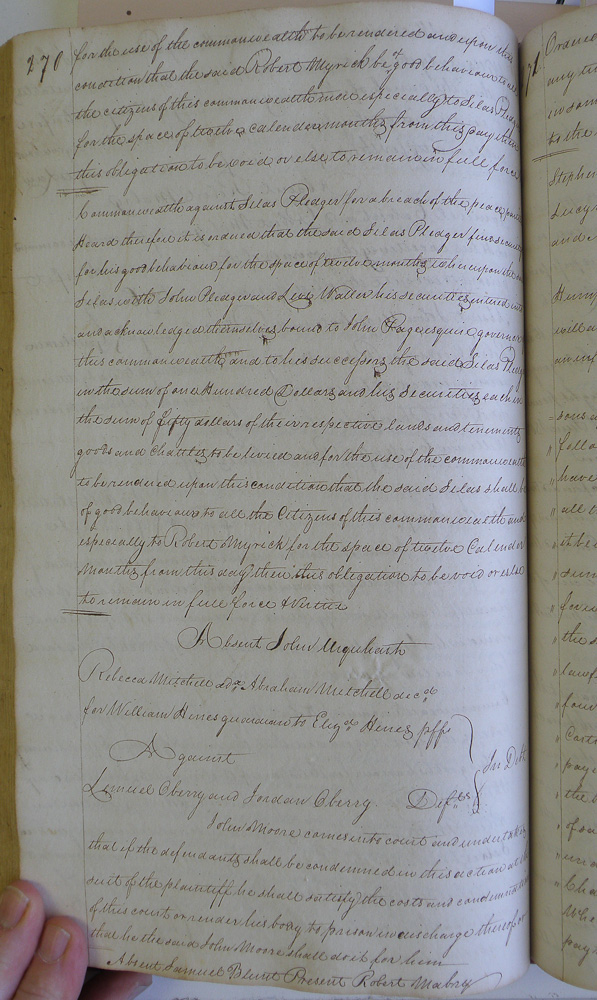 270
for the use of the commonwealth to be rendered and upon this
condition that the said Robert Myrick be of good behaviour to all
the citizens of this commonwealth more especially to Silas
for the space of twelve calender months from this day then
this obligation to be void or else to remain in full force
Commonwealth against Silas Pledger for a breach of the peace
Heard therefore it is ordered that the said Silas Pledger find security
for his good behaviour for the space of twelve months whereupon the
Silas with John Pledger and Levi Waller his securities entered into
and acknowledged themselves bound to John Page esquire governor
this commonwealth and to his successors the said Silas
in the sum of one Hundred Dollars and his Securities each in
the sum of fifty dollars of their respective lands and tenements
goods and Chattles to be levied and for the use of the commonwealth
to be rendered upon this condition that the said Silas shall be
of good behaviour to all the Citizens of this commonwealth and
especially to Robert Myrick for the space of twelve Calender
Months from this day then this obligation to be void or else
to remain in full force & virtue
Absent John Urquhart
Rebecca Mitchell adx. Abraham Mitchell decd.
for William Hines guardian to Elizth. Hines plffs
Against
In Debt
Lemuel Oberry and Jordan Oberry Defts
John Moore comes into court and undertakes
that if the defendants shall be condemned in this action at the
suit of the plaintiff he shall satisfy the costs and condemnation
of this court or render his body to prison in discharge thereof or
that he the said John Moore shall do it for him
Absent Samuel Blunt Present Robert Mabry
271
Ordered
any
in
to the
Stephen
Lucy
and
Henry
will
an
sons
follo
have
all
it be
sum
for
the
lawf
four
Costs
pay
the
of sa
Cha
Who
pay